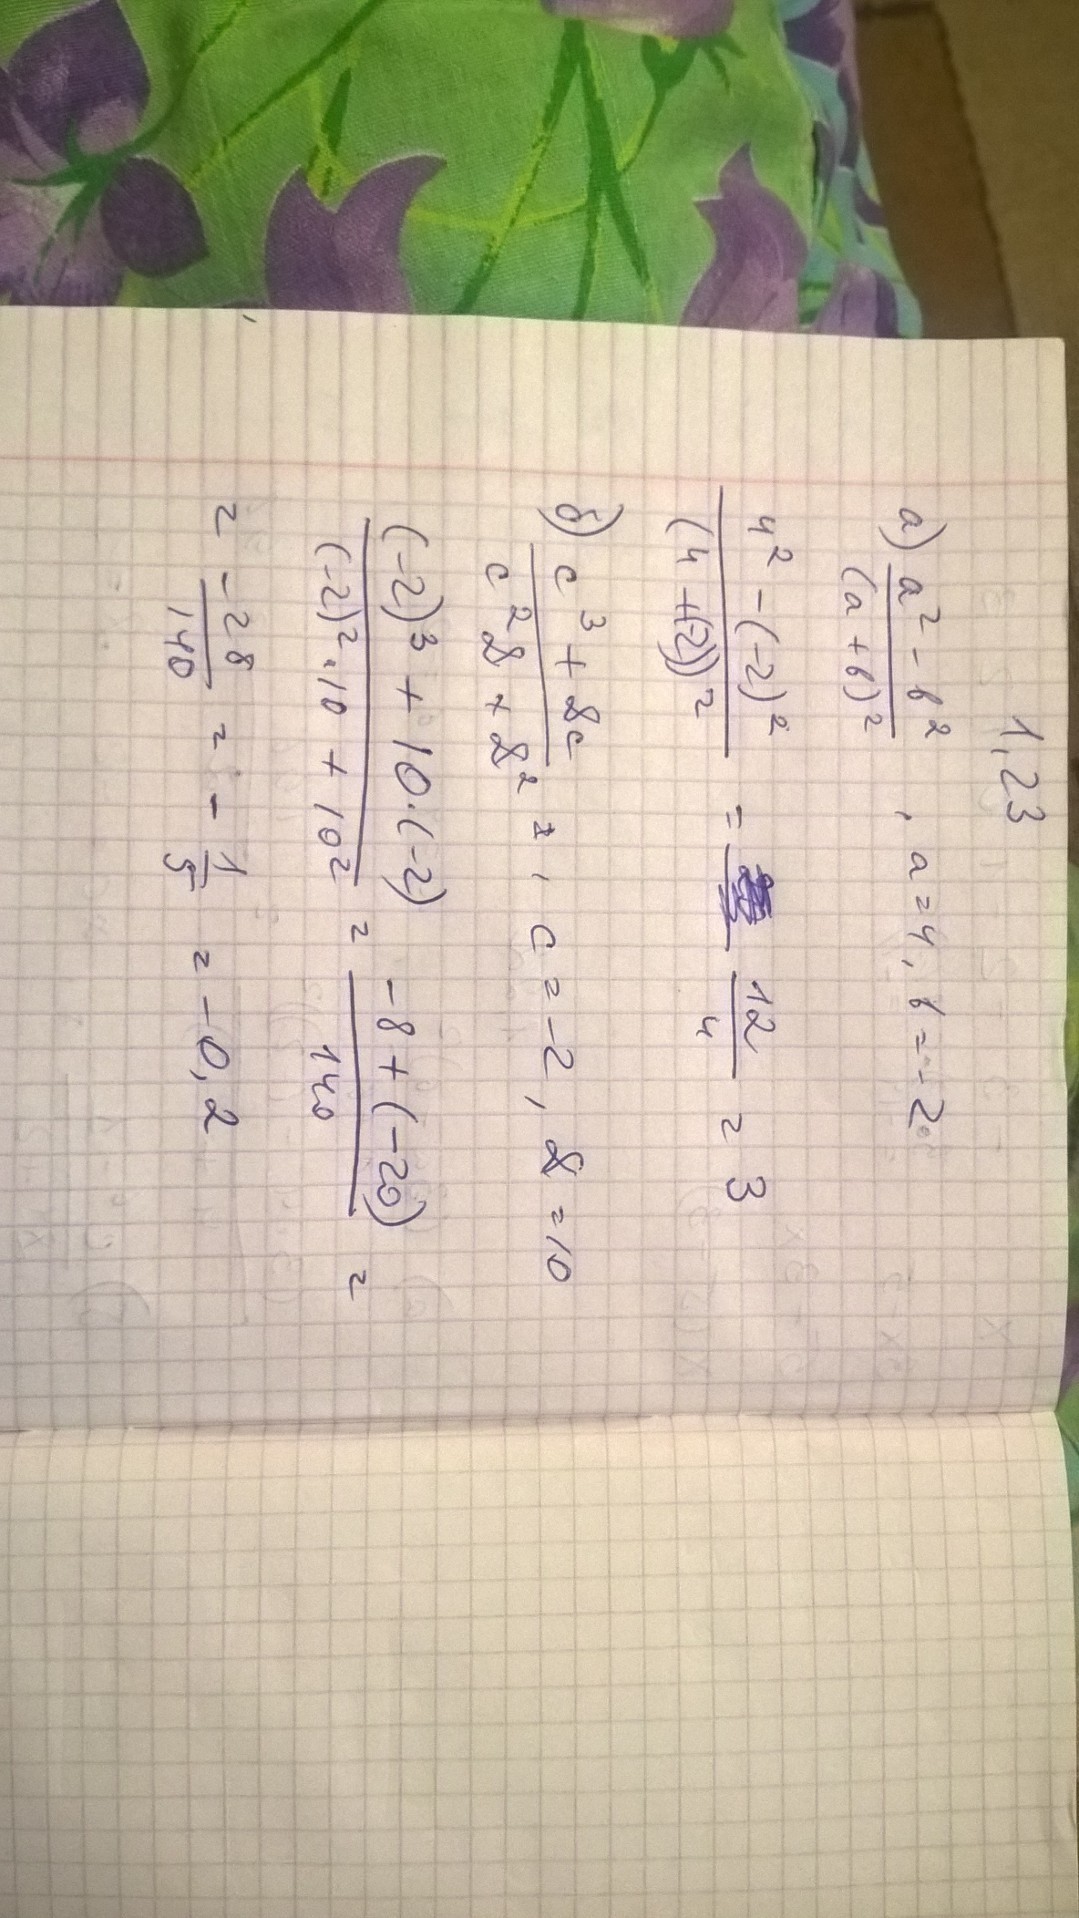 1,23
а) a² - b² / (a + b)² , a = 4, b = -2
4² - (-2)² / (4 + (2))² = 12 / 4 = 3
б) c³ + &c / c²& + &² = , c = -2, & = 10
(-2)³ + 10·(-2) / (-2)²·10 + 10² = -8 + (-20) / 140 =
= -28 / 140 = - 1 / 5 = -0,2